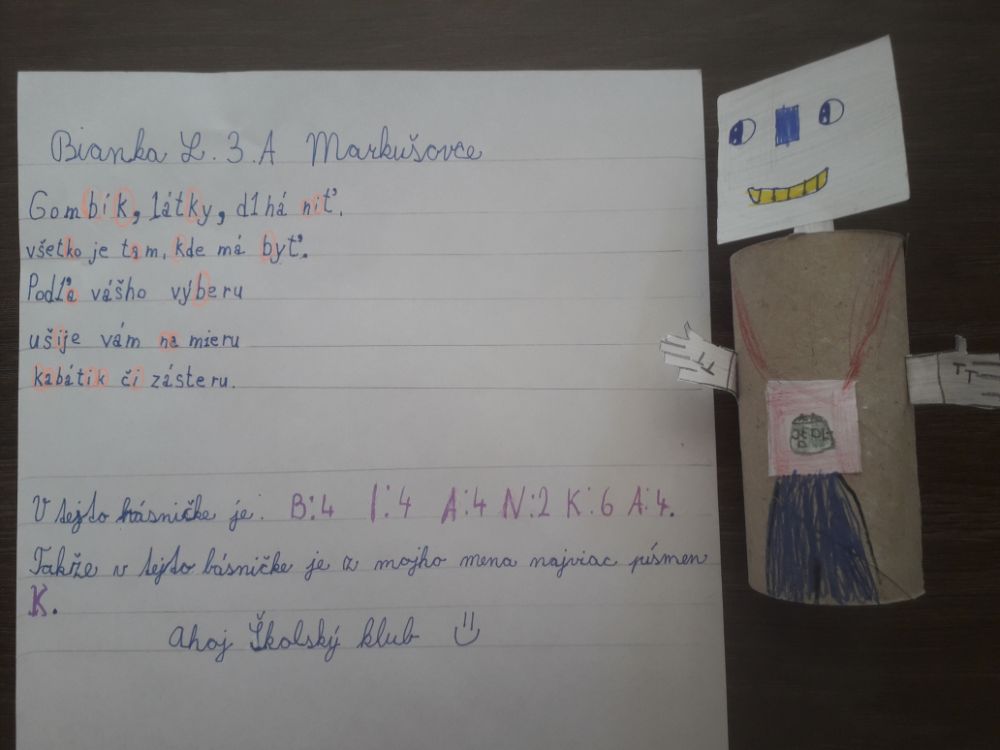 Bianka L. 3.A Markušovce
Gombík, látky, dlhá niť.
všetko je tam, kde má byť.
Podľa vášho výberu
ušije vám na mieru
kabátik či zásteru.
V tejto básničke je: B:4 I:4 A:4 N:2 K:6 A:4.
Takže v tejto básničke je z mojho mena najviac písmen
K.
Ahoj Školský klub